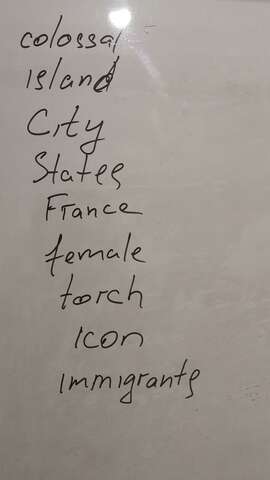 colossal
island
City
States
France
female
torch
icon
immigrants